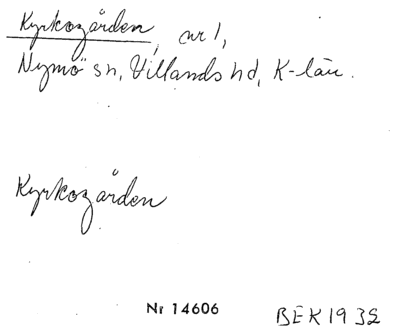 Kyrkogården, nr 1,
Nymö sn, Villands hd, K-län.
Kyrkogården
Nr 14606
BEK 1932